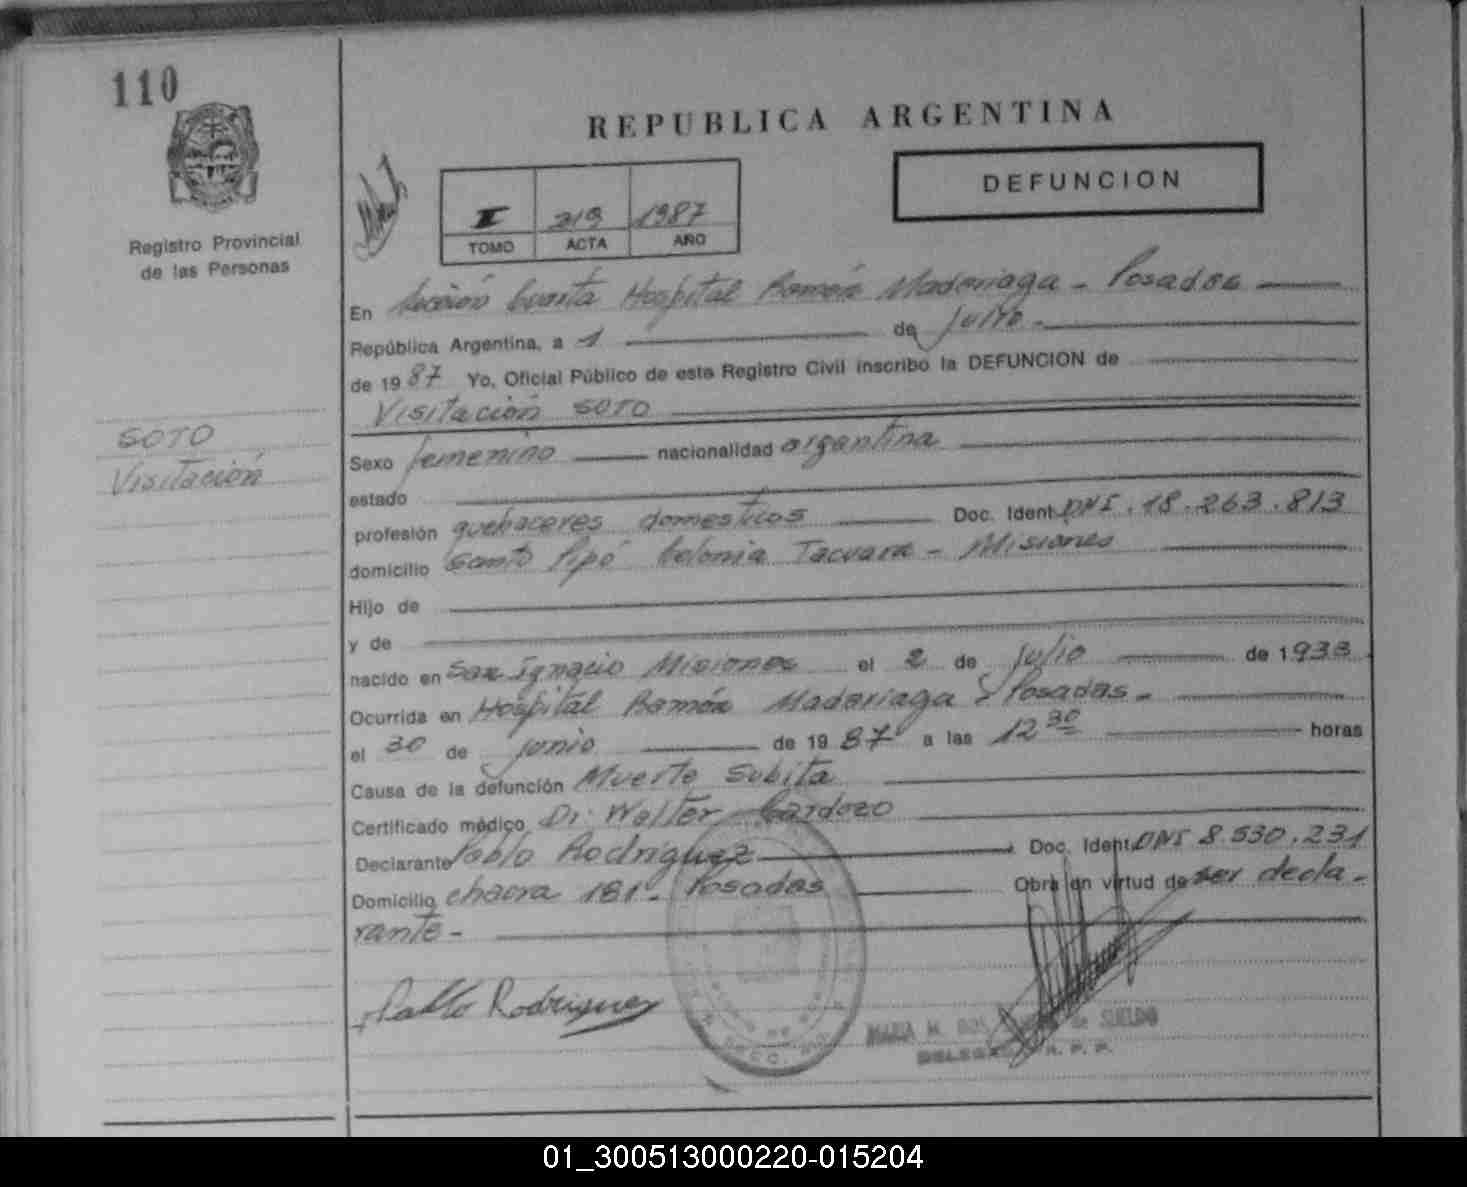 110
REPUBLICA ARGENTINA
DEFUNCION
I 219 1987
TOMO ACTA AÑO
Registro Provincial
de las Personas
En Sección Cuarta Hospital Ramón Madariaga - Posadas
República Argentina, a 1 de Julio.-
de 1987 Yo, Oficial Público de este Registro Civil inscribo la DEFUNCION de
Visitación SOTO
SOTO
Visitación
Sexo femenino nacionalidad argentina
estado
profesión quehaceres domesticos Doc. Ident. DNI. 18.263.813
domicilio Santo Pipó Colonia Tacuara - Misiones
Hijo de
y de
nacido en San Ignacio Misiones el 2 de Julio de 1933
Ocurrida en Hospital Ramón Madariaga Posadas.-
el 30 de junio de 1987 a las 12 30 horas
Causa de la defunción Muerte Subita
Certificado médico Dr. Walter Cardozo
Declarante Pablo Rodriguez Doc. Ident. DNI 8.530.231
Domicilio chacra 181.- Posadas Obra en virtud de ser decla-
rante-
Pablo Rodriguez
MARIA M. DOS de SUELDO
R. P. P.
01_300513000220-015204